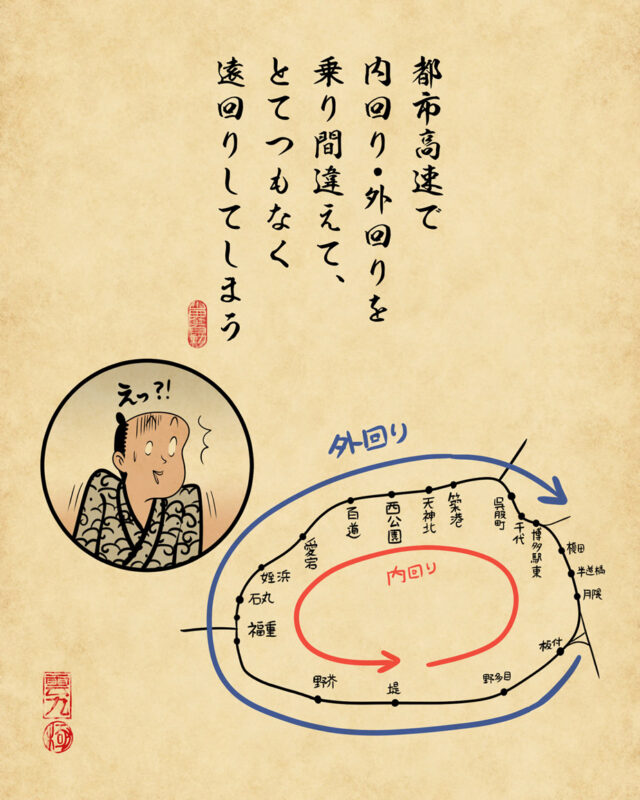 都市高速で
内回り・外回りを
乗り間違えて、
とてつもなく
遠回りしてしまう
えっ?!
外回り
内回り
呉服町
千代
博多駅東
榎田
半道橋
月隈
板付
築港
天神北
西公園
百道
愛宕
姪浜
石丸
福重
野芥
堤
野多目